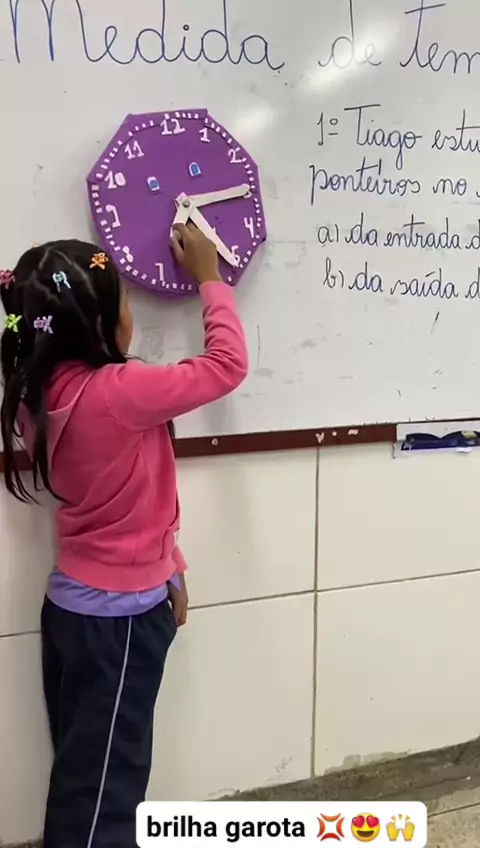 Medida de tem
12
1
11
2
10
4
8
5
7
1º Tiago estu
ponteiros no
a) da entrada d
b) da saída d
brilha garota 💢😍🙌